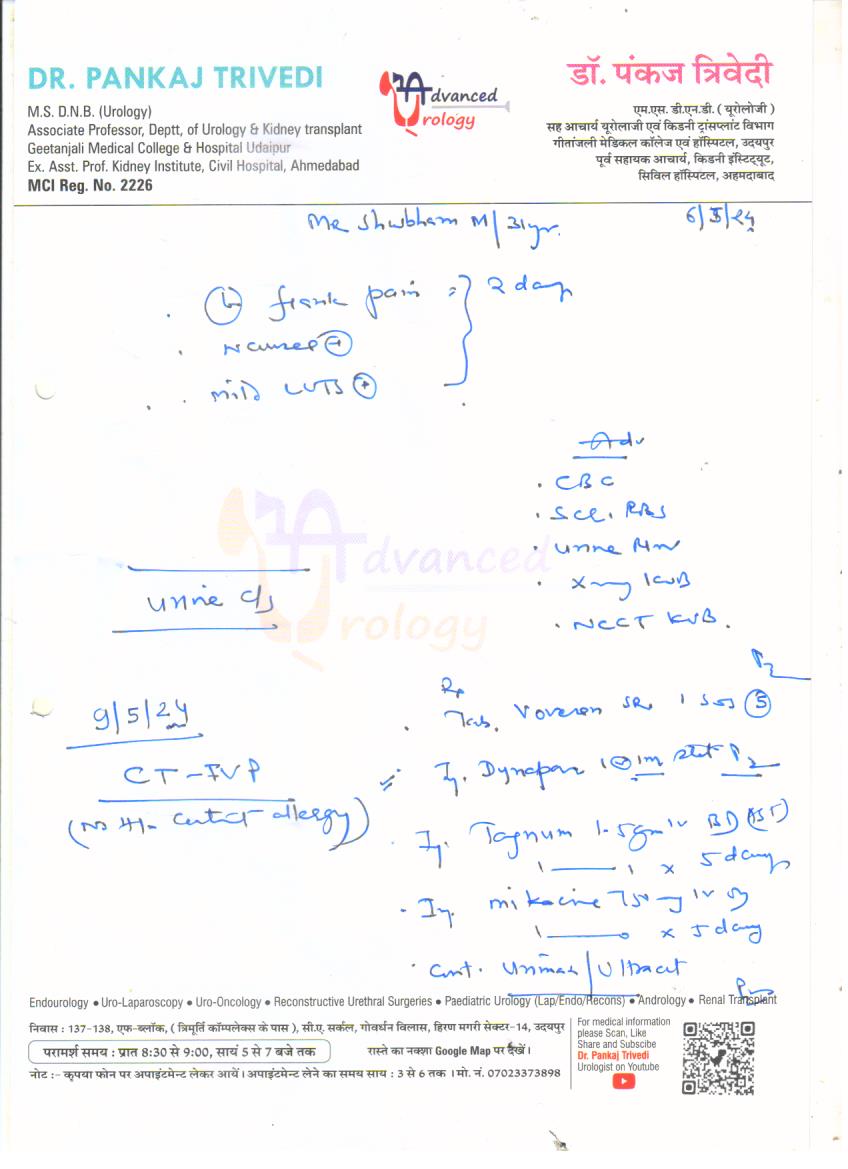 DR. PANKAJ TRIVEDI
M.S. D.N.B. (Urology)
Associate Professor, Deptt, of Urology & Kidney transplant
Geetanjali Medical College & Hospital Udaipur
Ex. Asst. Prof. Kidney Institute, Civil Hospital, Ahmedabad
MCI Reg. No. 2226
Advanced
Urology
डॉ. पंकज त्रिवेदी
एम.एस. डी.एन.डी. ( यूरोलोजी )
सह आचार्य यूरोलाजी एवं किडनी ट्रांसप्लांट विभाग
गीतांजली मेडिकल कॉलेज एवं हॉस्पिटल, उदयपुर
पूर्व सहायक आचार्य, किडनी इंस्टिट्यूट,
सिविल हॉस्पिटल, अहमदाबाद
Mr Shubham M/31yr.
6/5/24
(L) flank pain
2 days
Nausea +
mild LUTS +
Adv
CBC
S.Cr. RBS
Urine
X-ray KUB
NCCT KUB.
Advanced
Urology
Urine C/S
Rp
Tab. Voveran SR 1 SOS (5)
9/5/24
CT-IVP
(No H/o contrast allergy)
Inj. Dynapar 1 im stat
Inj. Tagnum 1.5gm iv BD (AST)
1 — 1 x 5 days
Inj. mikacine 750mg iv OD
1 — 0 x 5 days
Cont. Urimax / Ultracet
Endourology • Uro-Laparoscopy • Uro-Oncology • Reconstructive Urethral Surgeries • Paediatric Urology (Lap/Endo/Recons) • Andrology • Renal Transplant
निवास : 137-138, एफ-ब्लॉक, ( त्रिमूर्ति कॉम्पलेक्स के पास ), सी.ए. सर्कल, गोवर्धन विलास, हिरण मगरी सेक्टर-14, उदयपुर
परामर्श समय : प्रात 8:30 से 9:00, सायं 5 से 7 बजे तक
रास्ते का नक्शा Google Map पर देखें।
नोट :- कृपया फोन पर अपाइंटमेन्ट लेकर आयें। अपाइंटमेन्ट लेने का समय साय : 3 से 6 तक । मो. नं. 07023373898
For medical information
please Scan, Like
Share and Subscibe
Dr. Pankaj Trivedi
Urologist on Youtube